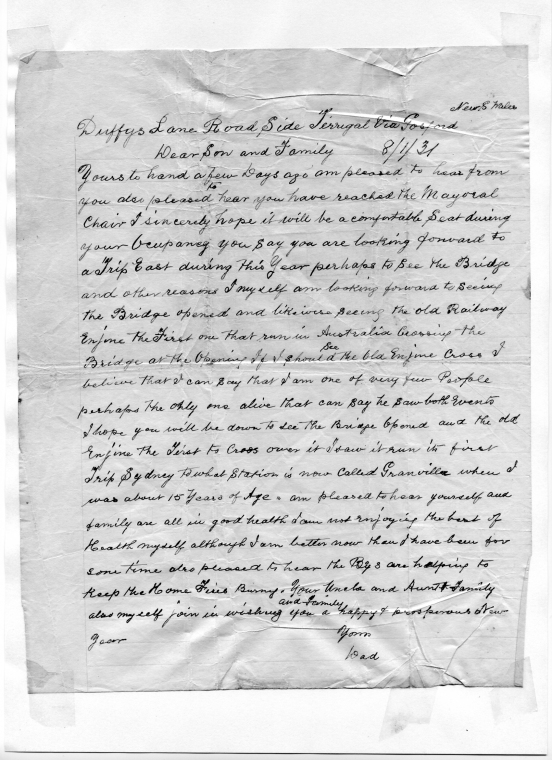 New. S Wales
Duffys Lane Road, Side Terrigal Via Gosford
Dear Son and Family 8/1/31
Yours to hand a few Days ago am pleased to hear from
you also pleased to hear you have reached the Mayoral
Chair I sincerely hope it will be a comfortable Seat during
your Ocupaney you say you are looking forward to
a Trip East during this Year perhaps to see the Bridge
and other reasons I myself am looking forward to seeing
the Bridge opened and likewise seeing the old Railway
Enjine the First one that run in Australia Crossing the
Bridge at the Opening If I should see the Old Enjine Cross I
believe that I can say that I am one of very few People
perhaps the only one alive that can say he saw both Events
I hope you will be down to see the Bridge Opened and the old
Enjine the First to Cross over it I saw it run its first
Trip Sydney to what Station is now Called Granville when I
was about 15 Years of Age. am pleased to hear yourself and
family are all in good health I am not enjoying the best of
Health myself although I am better now than I have been for
some time also pleased to hear the Boys are helping to
Keep the Home Fires Burning. Your Uncle and Aunt & Family
also myself join in wishing you and Family a happy & prosperous New
Year
Yours
Dad